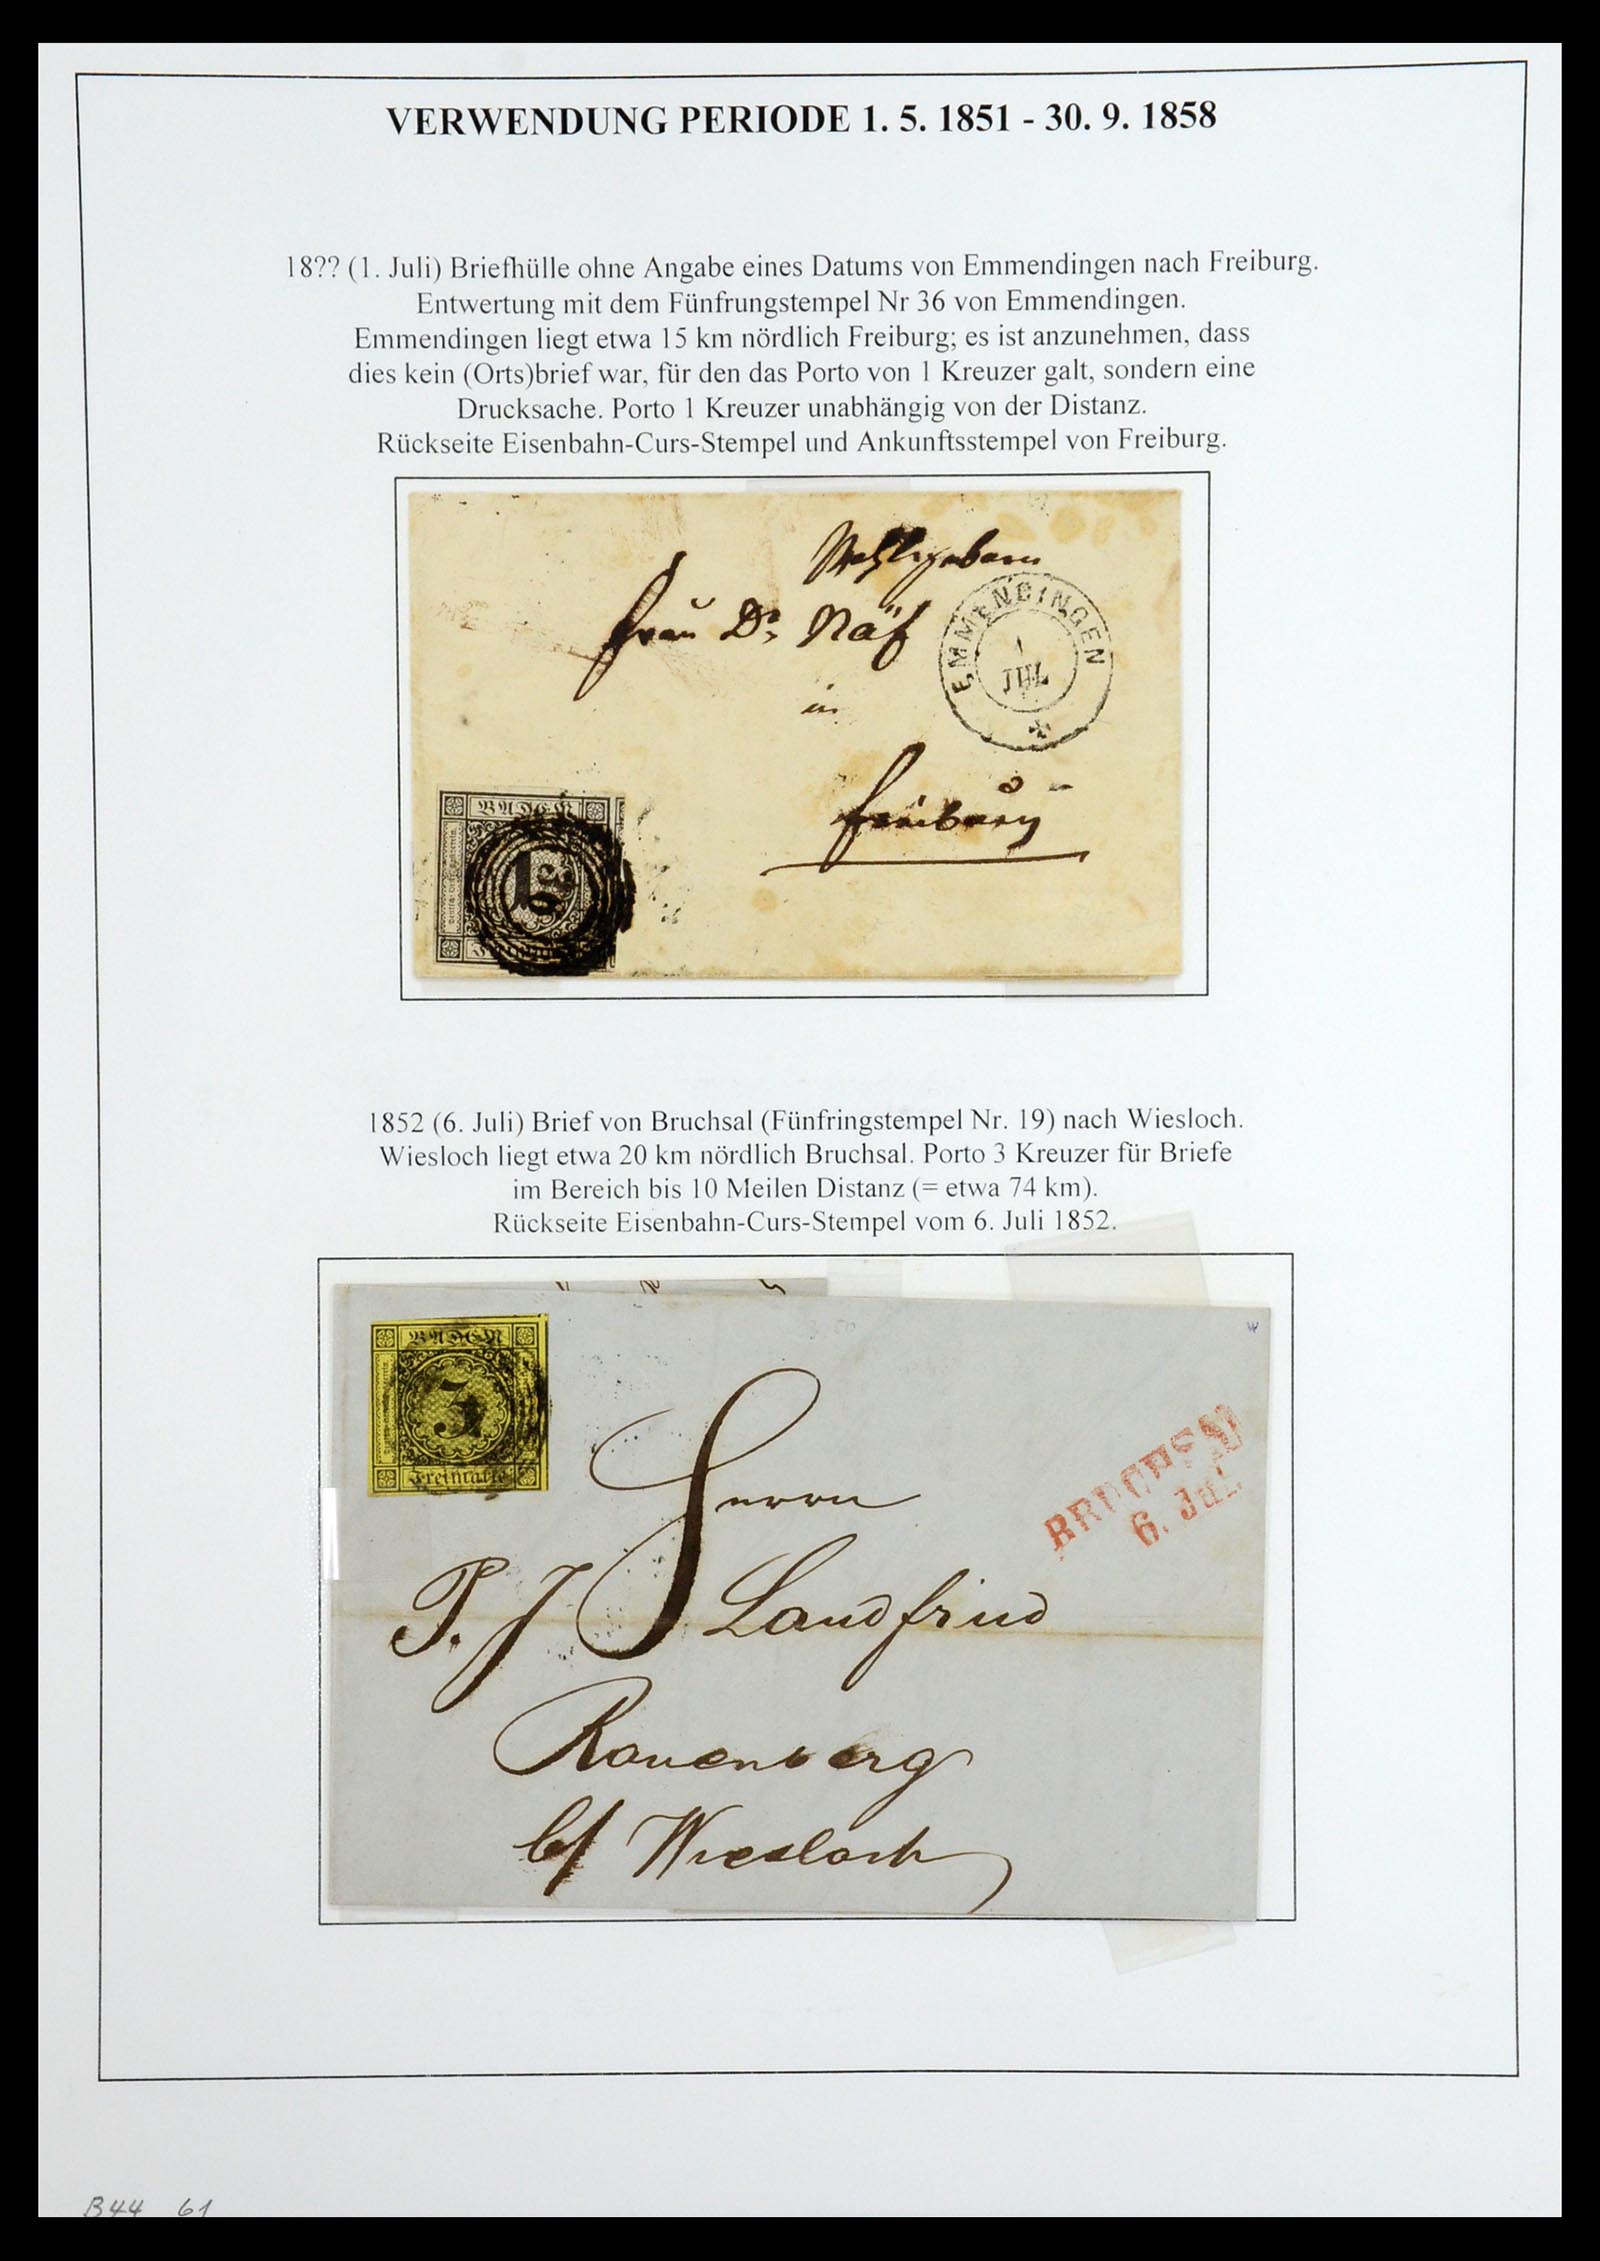 VERWENDUNG PERIODE 1. 5. 1851 - 30. 9. 1858
18?? (1. Juli) Briefhülle ohne Angabe eines Datums von Emmendingen nach Freiburg.
Entwertung mit dem Fünfrungstempel Nr 36 von Emmendingen.
Emmendingen liegt etwa 15 km nördlich Freiburg; es ist anzunehmen, dass
dies kein (Orts)brief war, für den das Porto von 1 Kreuzer galt, sondern eine
Drucksache. Porto 1 Kreuzer unabhängig von der Distanz.
Rückseite Eisenbahn-Curs-Stempel und Ankunftsstempel von Freiburg.
Frau Dr. Näf
in
Freiburg
EMMENDINGEN
1
JUL
BADEN
1
36
1852 (6. Juli) Brief von Bruchsal (Fünfringstempel Nr. 19) nach Wiesloch.
Wiesloch liegt etwa 20 km nördlich Bruchsal. Porto 3 Kreuzer für Briefe
im Bereich bis 10 Meilen Distanz (= etwa 74 km).
Rückseite Eisenbahn-Curs-Stempel vom 6. Juli 1852.
BADEN
3
Freimarke
BRUCHSAL
6. Jul.
Herrn
P. J Landfried
Rauenberg
b/ Wiesloch
B44 61